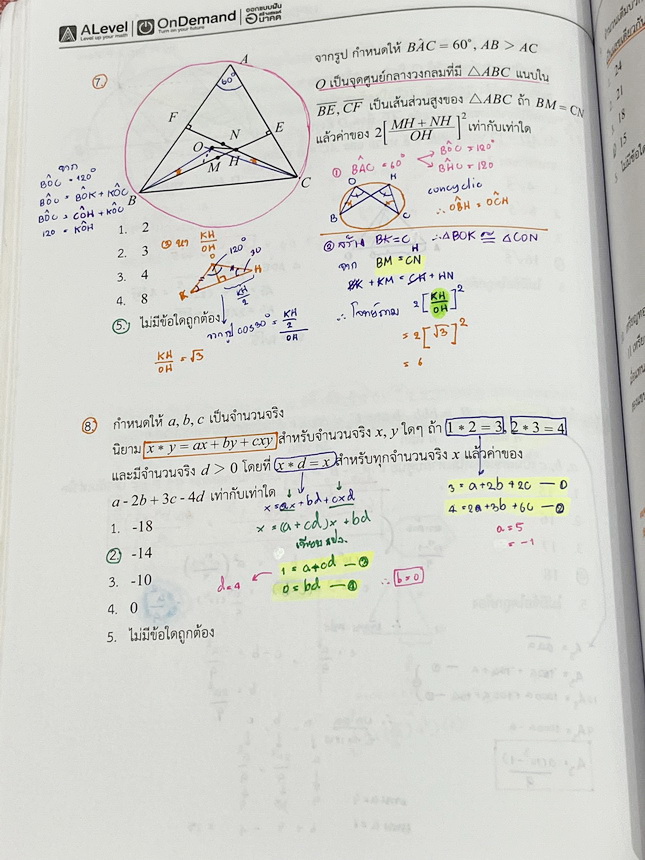 ALevel
Level up your math
OnDemand
Turn on your future
ออกแบบฝัน
สร้างสรรค์
อนาคต
7.
จากรูป กำหนดให้ BÂC = 60°, AB > AC
O เป็นจุดศูนย์กลางวงกลมที่มี △ABC แนบใน
BE, CF เป็นเส้นส่วนสูงของ △ABC ถ้า BM = CN
แล้วค่าของ 2[(MH + NH)/OH]² เท่ากับเท่าใด
A
60°
F
N
E
O
M
H
B
C
จาก
BÔC = 120°
BÔC = BÔK + KÔC
BÔC = CÔH + KÔC
120 = KÔH
① BÂC = 60°
BÔC = 120°
BĤC = 120
O
H
B
C
concyclic
∴ OB̂H = OĈH
② สร้าง BK = CH ∴ △BOK ≅ △COH
จาก BM = CN
BK + KM = CH + HN
∴ โจทย์ถาม 2[KH/OH]²
= 2[√3]²
= 6
1. 2
2. 3
3. 4
4. 8
5. ไม่มีข้อใดถูกต้อง
③ หา KH/OH
O
120°
30
K
H
KH/2
จากรูป cos30° = (KH/2)/OH
KH/OH = √3
8.
กำหนดให้ a, b, c เป็นจำนวนจริง
นิยาม x * y = ax + by + cxy สำหรับจำนวนจริง x, y ใดๆ ถ้า 1 * 2 = 3, 2 * 3 = 4
และมีจำนวนจริง d > 0 โดยที่ x * d = x สำหรับทุกจำนวนจริง x แล้วค่าของ
a - 2b + 3c - 4d เท่ากับเท่าใด
x = ax + bd + cxd
x = (a + cd)x + bd
เทียบ สปส.
1 = a + cd — ③
0 = bd — ④
∴ b = 0
d = 4
3 = a + 2b + 2c — ①
4 = 2a + 3b + 6c — ②
a = 5
= -1
1. -18
2. -14
3. -10
4. 0
5. ไม่มีข้อใดถูกต้อง
24
21
18
15